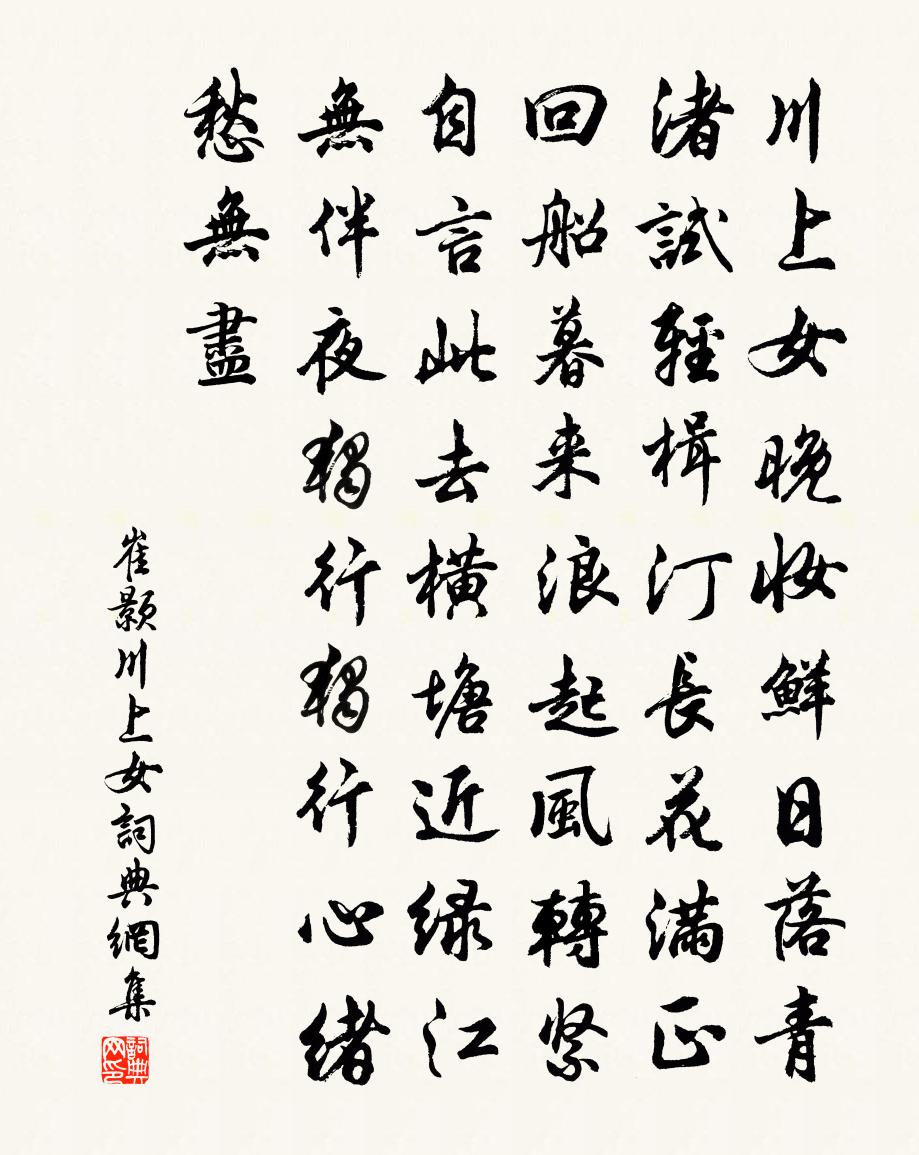 川上女晚妝鮮日落青
渚試輕楫汀長花滿正
回船暮来浪起風轉緊
自言此去橫塘近緑江
無伴夜獨行獨行心緒
愁無盡
崔颢川上女詞典網集
詞典网印